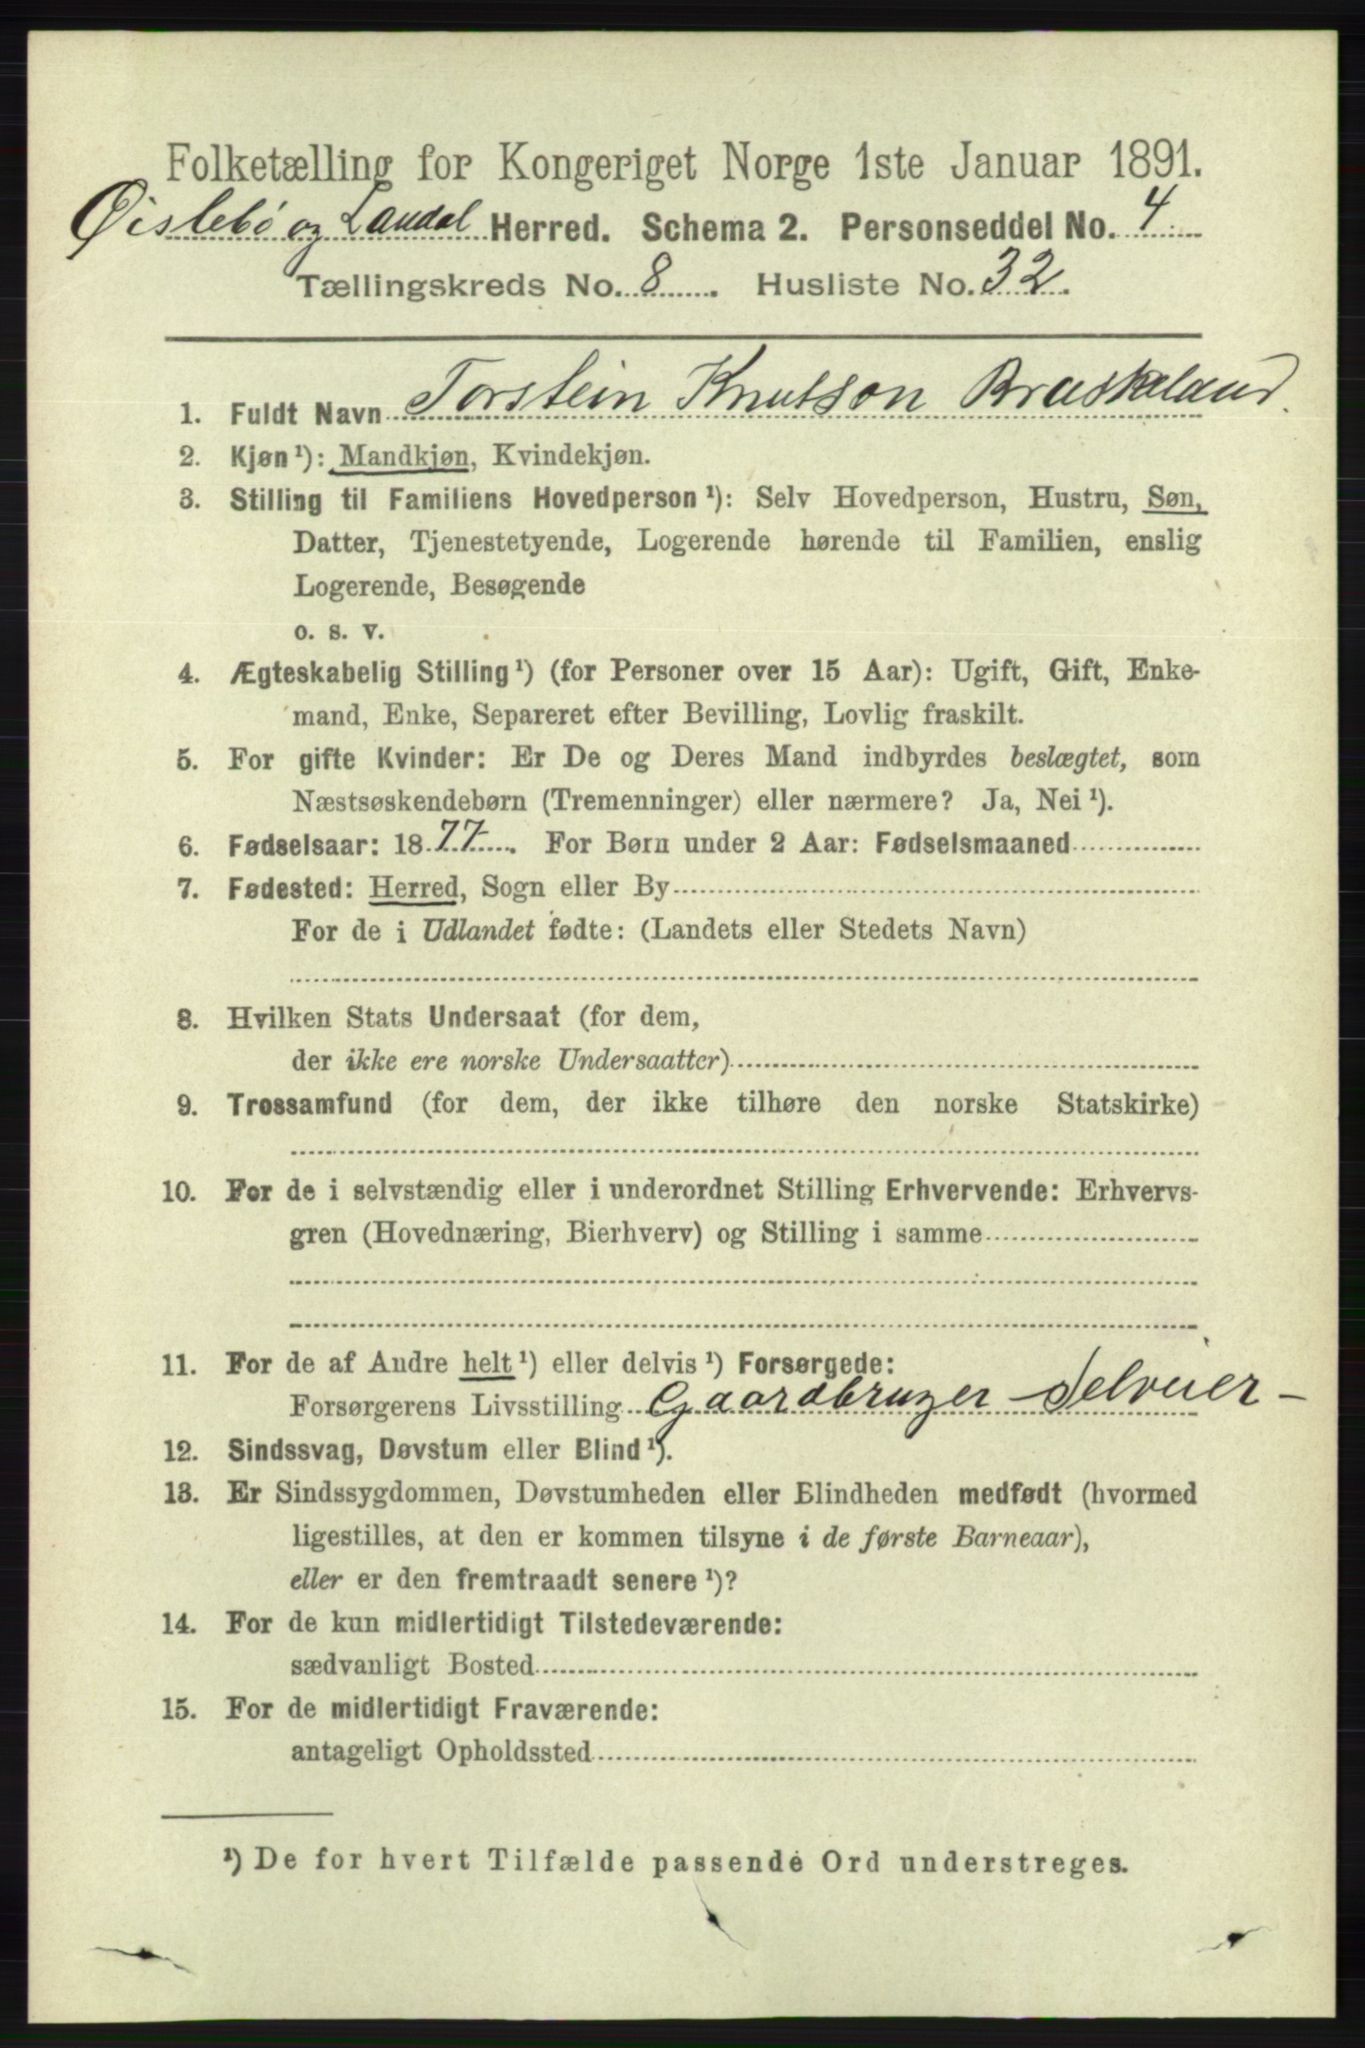 Folketælling for Kongeriget Norge 1ste Januar 1891.
Øislebö og Laudal Herred. Schema 2. Personseddel No. 4
Tællingskreds No. 8. Husliste No. 32.
1. Fuldt Navn Torstein Knutson Bruskeland.
2. Kjøn ¹): Mandkjøn, Kvindekjøn.
3. Stilling til Familiens Hovedperson ¹): Selv Hovedperson, Hustru, Søn,
Datter, Tjenestetyende, Logerende hørende til Familien, enslig
Logerende, Besøgende
o. s. v.
4. Ægteskabelig Stilling ¹) (for Personer over 15 Aar): Ugift, Gift, Enke-
mand, Enke, Separeret efter Bevilling, Lovlig fraskilt.
5. For gifte Kvinder: Er De og Deres Mand indbyrdes beslægtet, som
Næstsøskendebørn (Tremenninger) eller nærmere? Ja, Nei ¹).
6. Fødselsaar: 1877. For Børn under 2 Aar: Fødselsmaaned
7. Fødested: Herred, Sogn eller By
For de i Udlandet fødte: (Landets eller Stedets Navn)
8. Hvilken Stats Undersaat (for dem,
der ikke ere norske Undersaatter)
9. Trossamfund (for dem, der ikke tilhøre den norske Statskirke)
10. For de i selvstændig eller i underordnet Stilling Erhvervende: Erhvervs-
gren (Hovednæring, Bierhverv) og Stilling i samme
11. For de af Andre helt ¹) eller delvis ¹) Forsørgede:
Forsørgerens Livsstilling Gaardbruger - Selveier -
12. Sindssvag, Døvstum eller Blind ¹).
13. Er Sindssygdommen, Døvstumheden eller Blindheden medfødt (hvormed
ligestilles, at den er kommen tilsyne i de første Barneaar),
eller er den fremtraadt senere ¹)?
14. For de kun midlertidigt Tilstedeværende:
sædvanligt Bosted
15. For de midlertidigt Fraværende:
antageligt Opholdssted
¹) De for hvert Tilfælde passende Ord understreges.